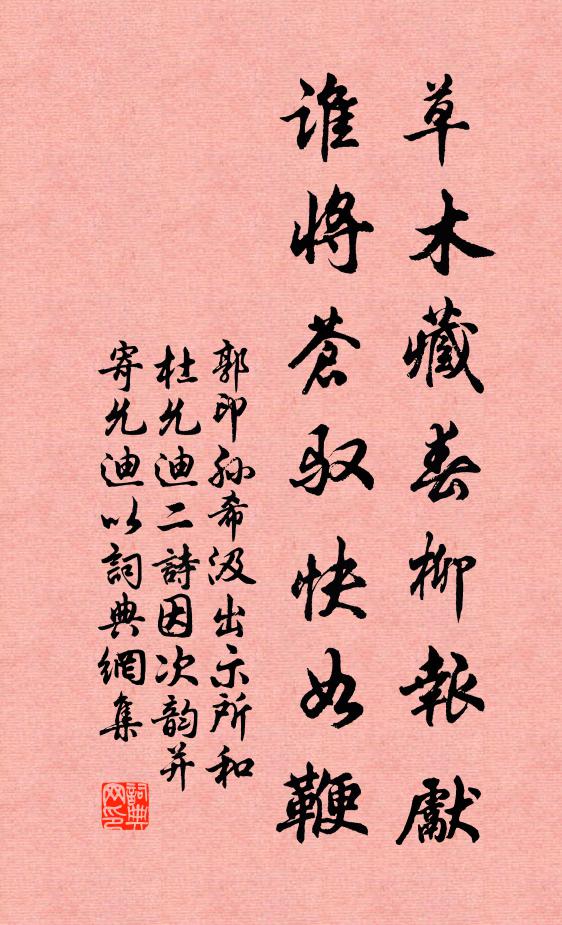 草木藏春柳報獻
誰將蒼馭快如鞭
郭印孫希汲出示所和
杜允迪二詩因次韵并
寄允迪以詞典網集
詞典网印